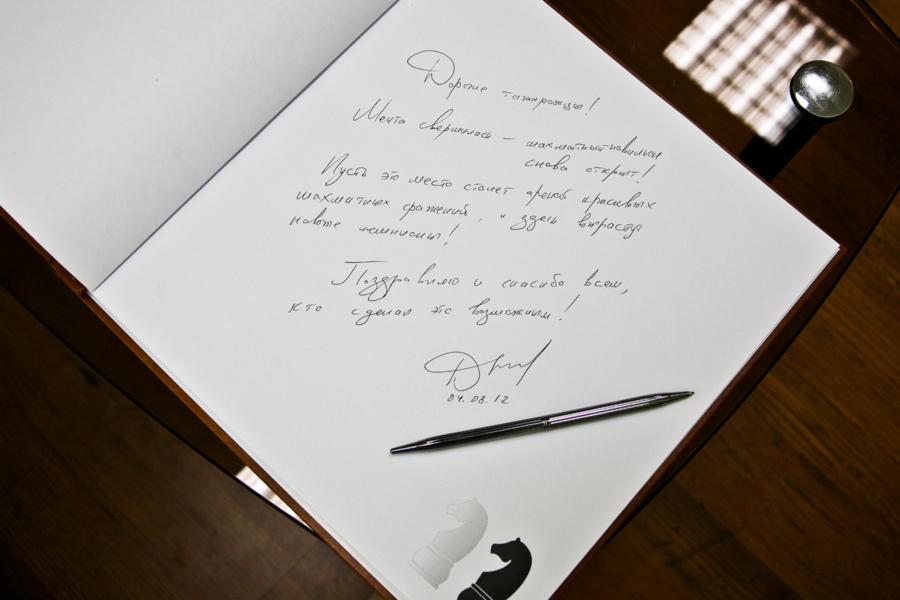 Дорогие таганрожцы!
Мечта свершилась – шахматный павильон
снова открыт!
Пусть это место станет ареной красивых
шахматных сражений, и здесь вырастут
новые чемпионы!
Поздравляю и спасибо всем,
кто сделал это возможным!
04.08.12